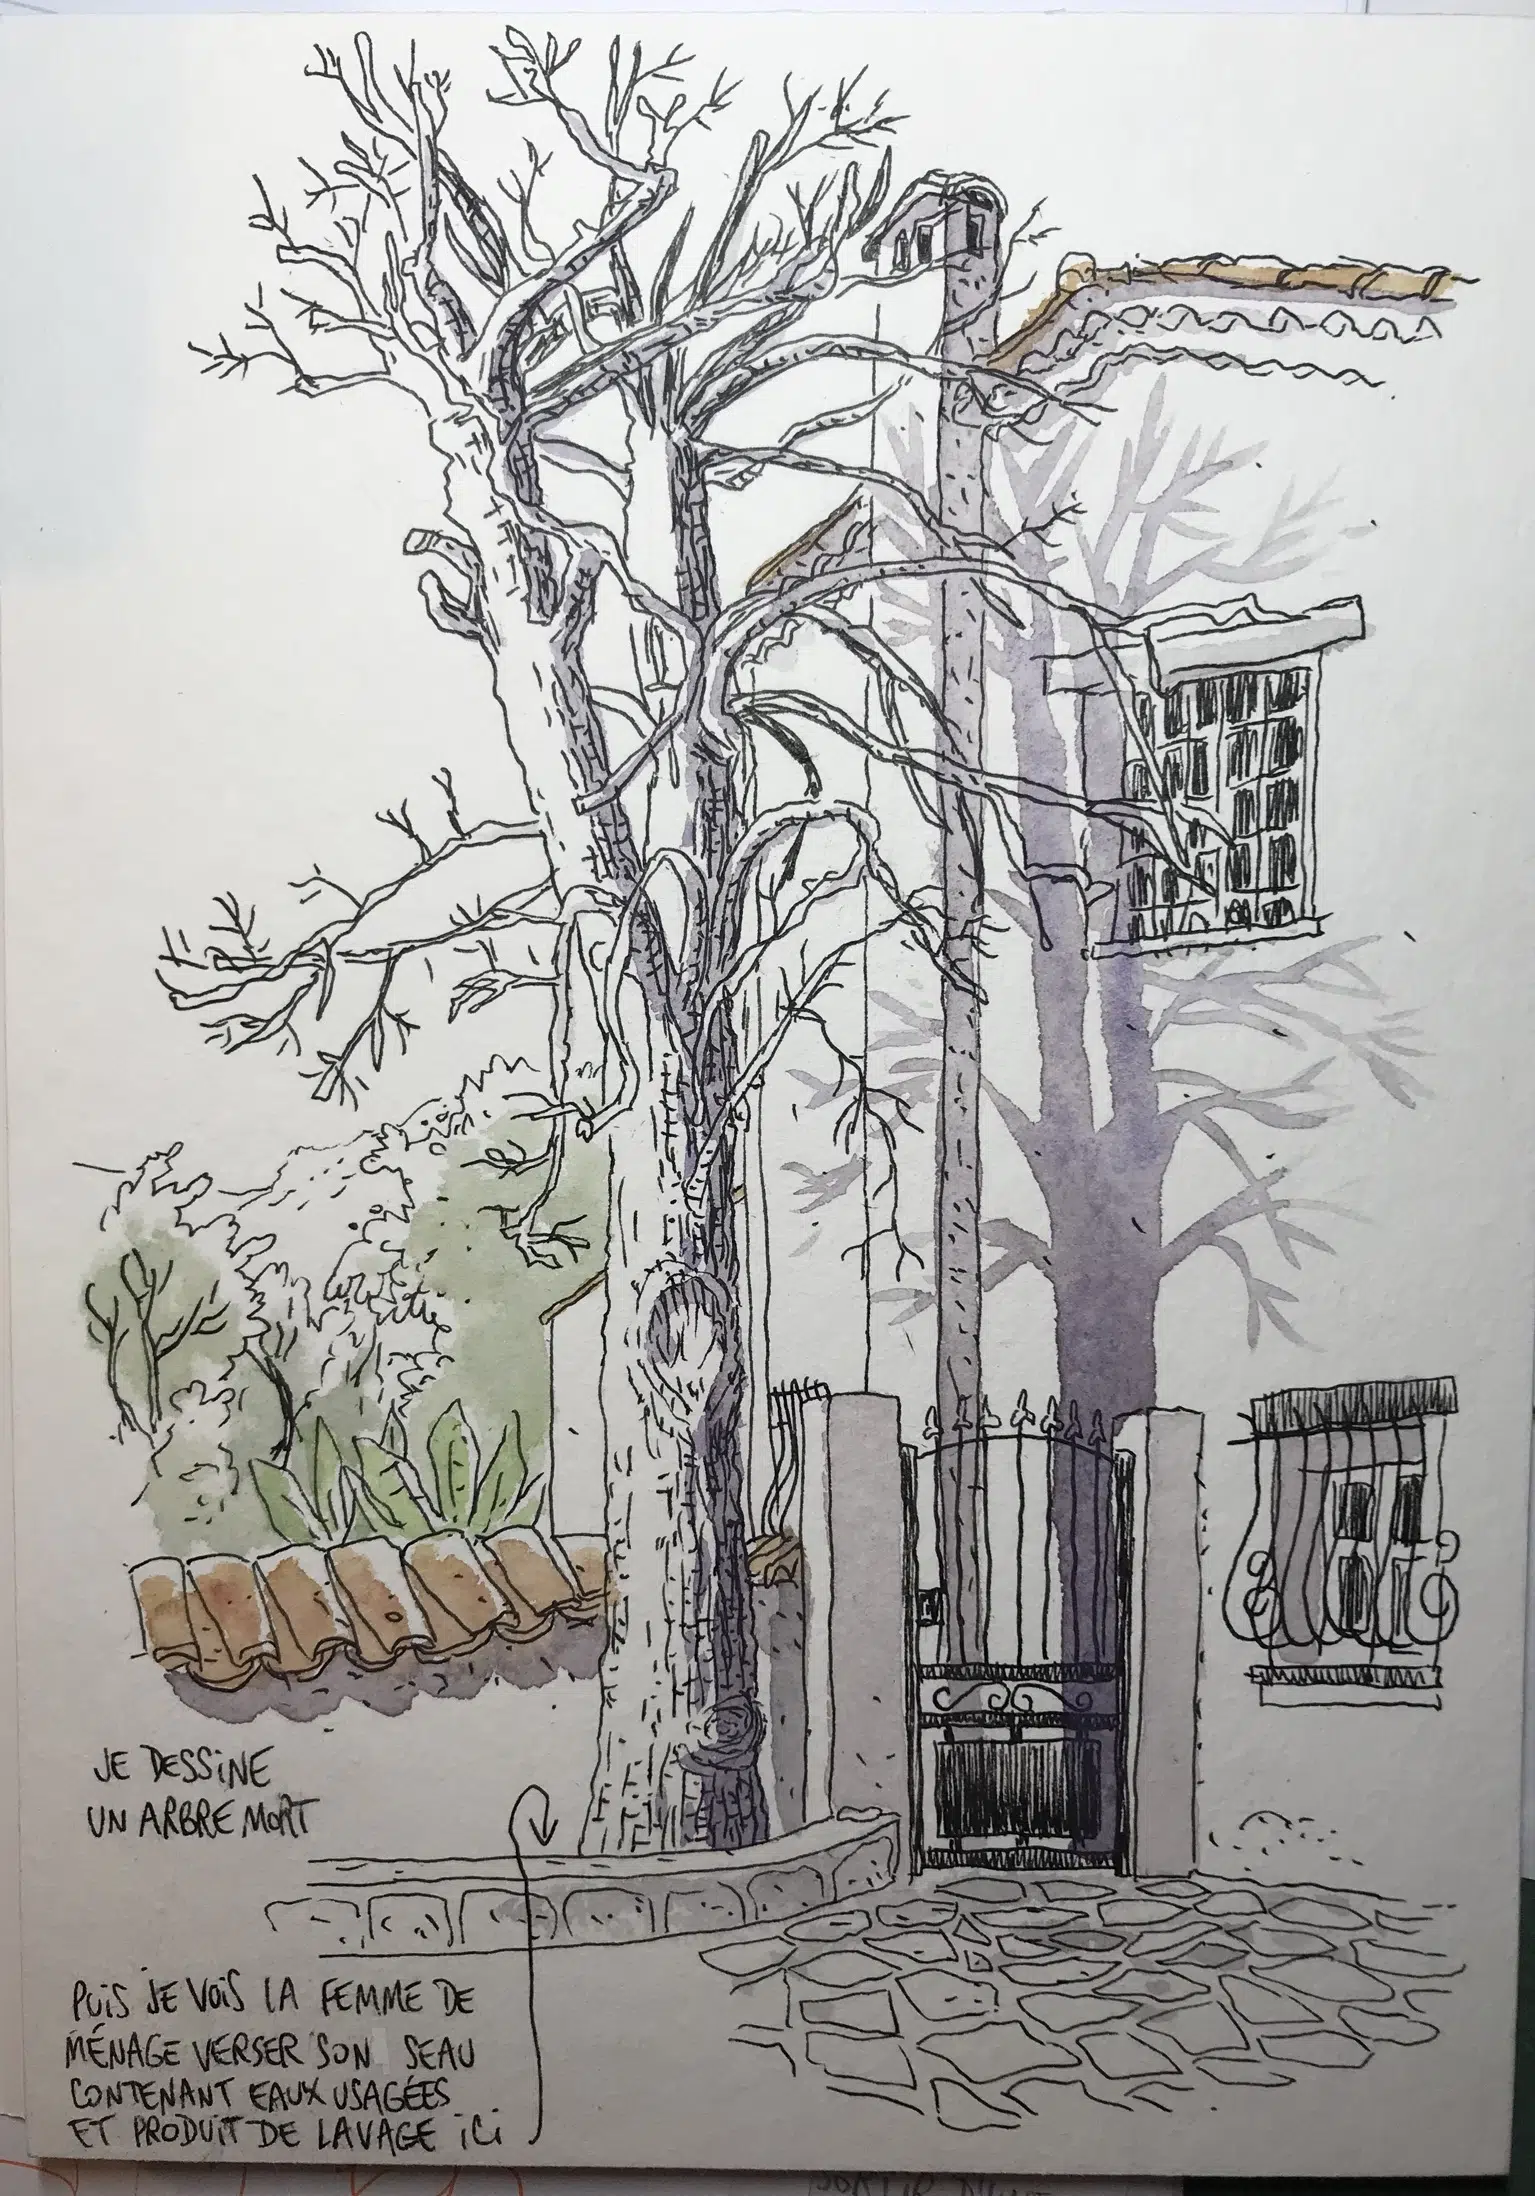 JE DESSINE
UN ARBRE MORT
PUIS JE VOIS LA FEMME DE
MÉNAGE VERSER SON SEAU
CONTENANT EAUX USAGÉES
ET PRODUIT DE LAVAGE ICI